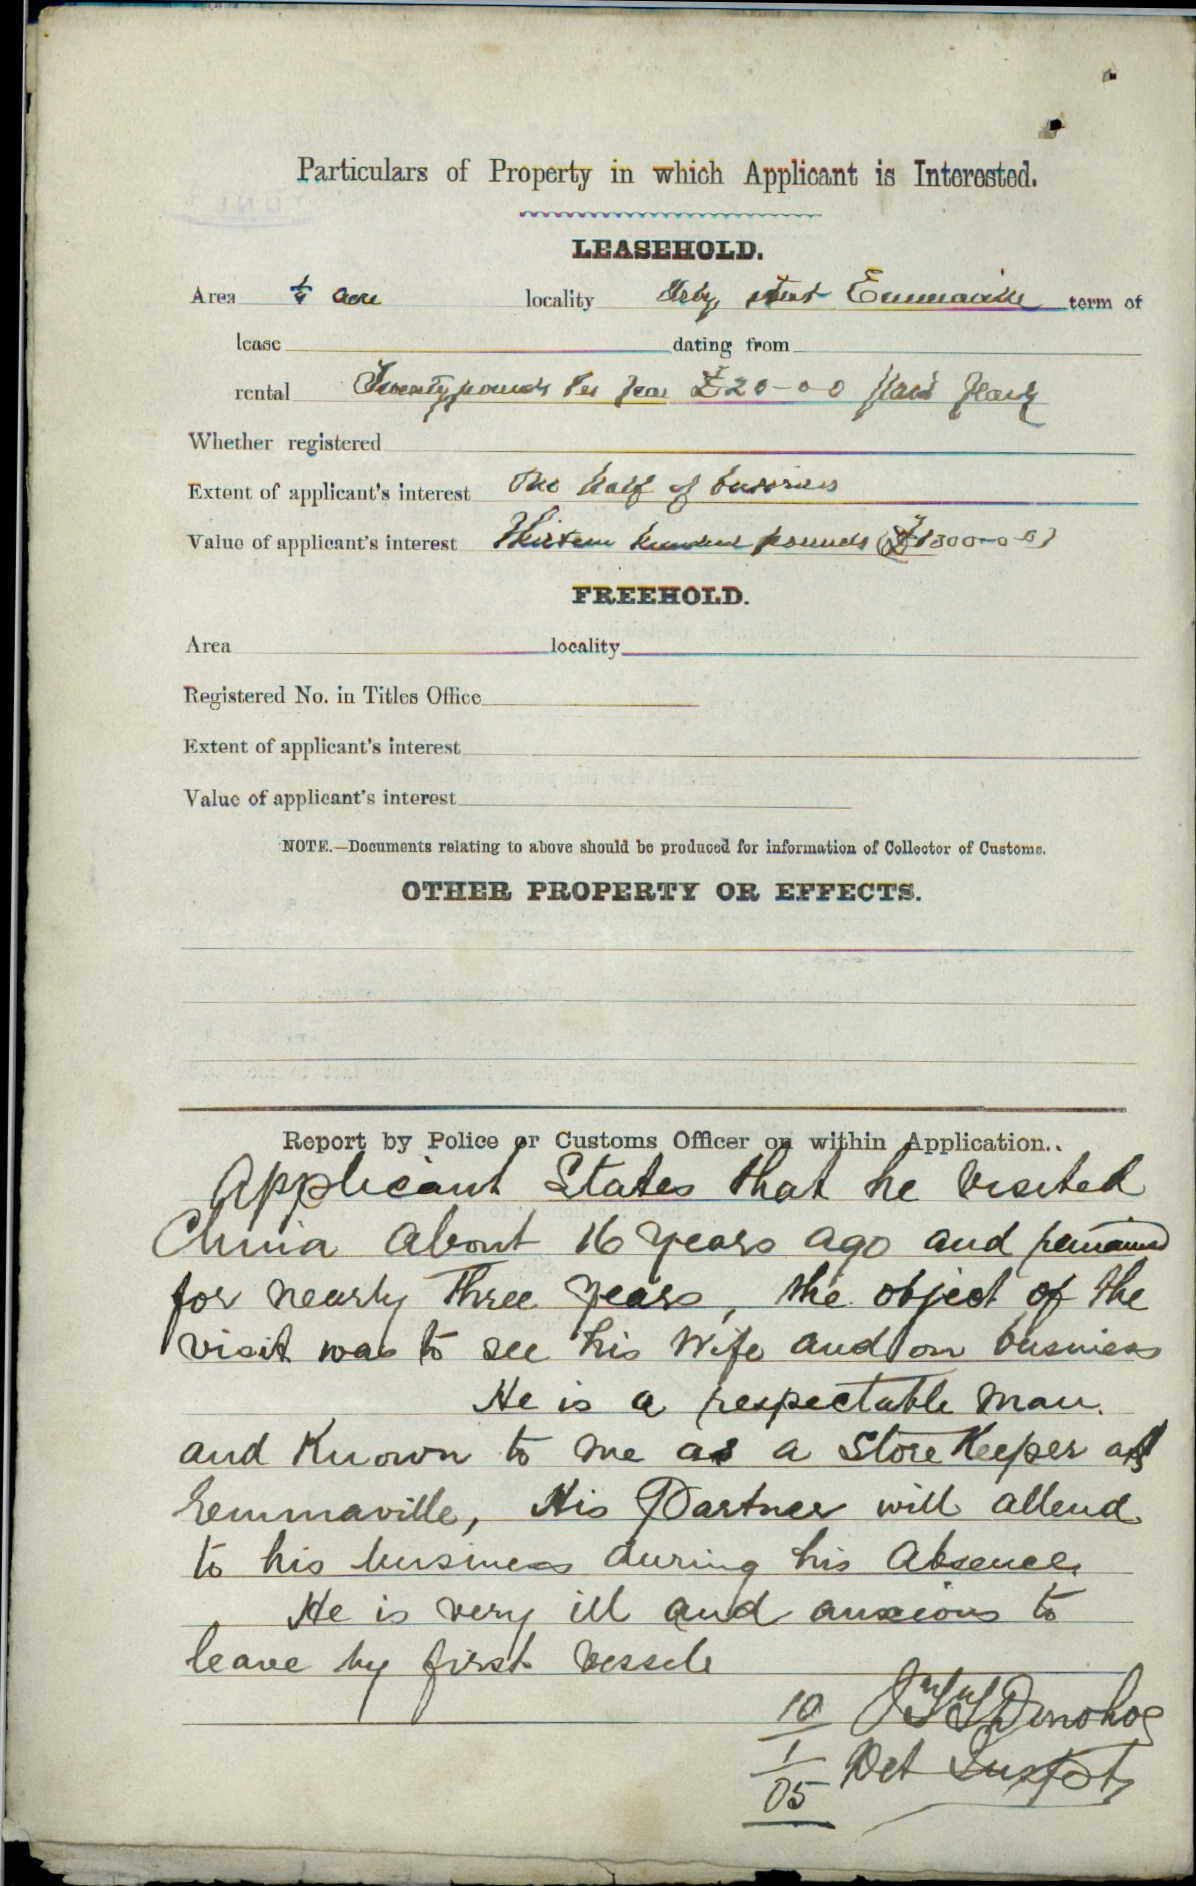 Particulars of Property in which Applicant is Interested.
LEASEHOLD.
Area 1/4 acre locality street Emmaville term of
lease dating from
rental Twenty pounds Per Year £20-0-0 paid Yearly
Whether registered
Extent of applicant's interest One half of bussines
Value of applicant's interest Thirteen hundred pounds (£1300-0-0)
FREEHOLD.
Area locality
Registered No. in Titles Office
Extent of applicant's interest
Value of applicant's interest
NOTE.—Documents relating to above should be produced for information of Collector of Customs.
OTHER PROPERTY OR EFFECTS.
Report by Police or Customs Officer on within Application.
Applicant States that he visited
China about 16 years ago and remained
for nearly three years, the object of the
visit was to see his Wife and on business
He is a respectable man.
and Known to me as a Store Keeper at
Emmaville, His Partner will attend
to his business during his Absence,
He is very ill and anxious to
leave by first vessele
10 Donohoe
1 Det Inspt
05